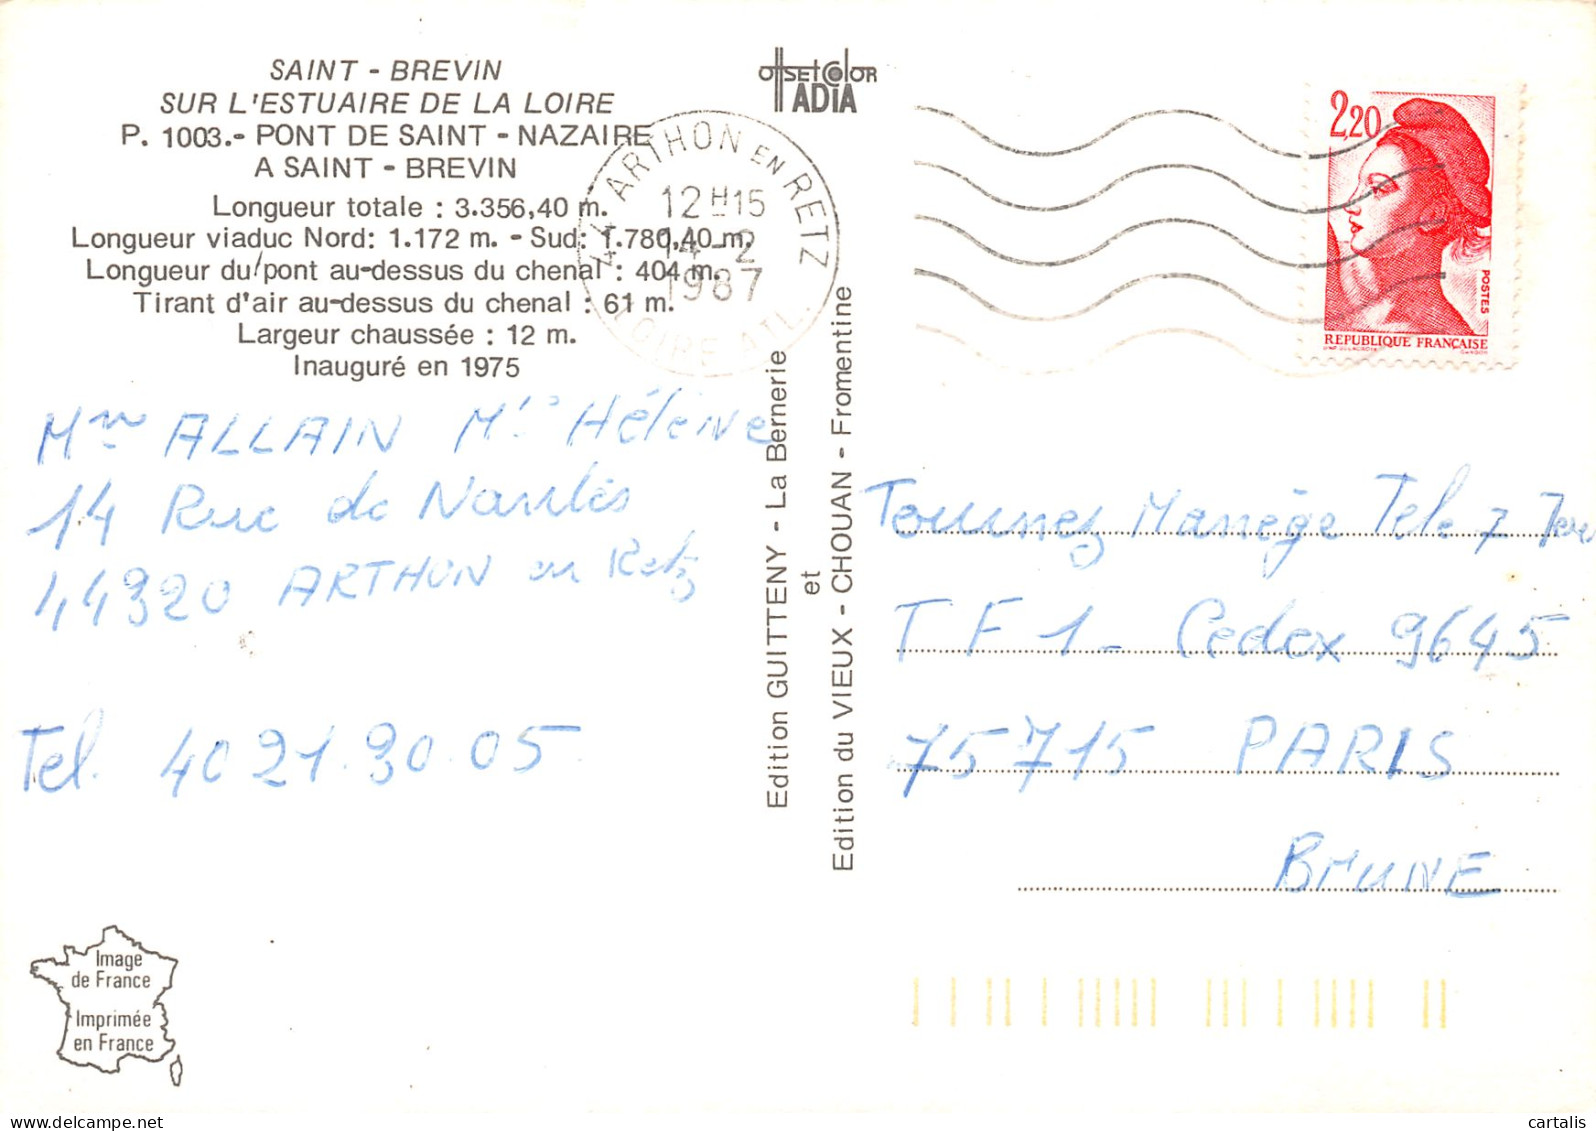 SAINT - BREVIN
SUR L'ESTUAIRE DE LA LOIRE
P. 1003.- PONT DE SAINT - NAZAIRE
A SAINT - BREVIN
Longueur totale : 3.356,40 m.
Longueur viaduc Nord: 1.172 m. - Sud: 1.780,40 m.
Longueur du pont au-dessus du chenal : 404 m.
Tirant d'air au-dessus du chenal : 61 m.
Largeur chaussée : 12 m.
Inauguré en 1975
Mme ALLAIN Mie Hélène
14 Rue de Nantes
44320 ARTHON en Retz
Tel. 40 21.30.05
Image
de France
Imprimée
en France
OffsetColoR
ADIA
44 ARTHON EN RETZ
12H15
14-2
1987
LOIRE ATL.
Edition GUITTENY - La Bernerie
et
Edition du VIEUX - CHOUAN - Fromentine
2,20
POSTES
REPUBLIQUE FRANÇAISE
GANDON
Tournez Manège Tele 7
T F 1 - Cedex 9645
75715 PARIS
BRUNE
cartalis